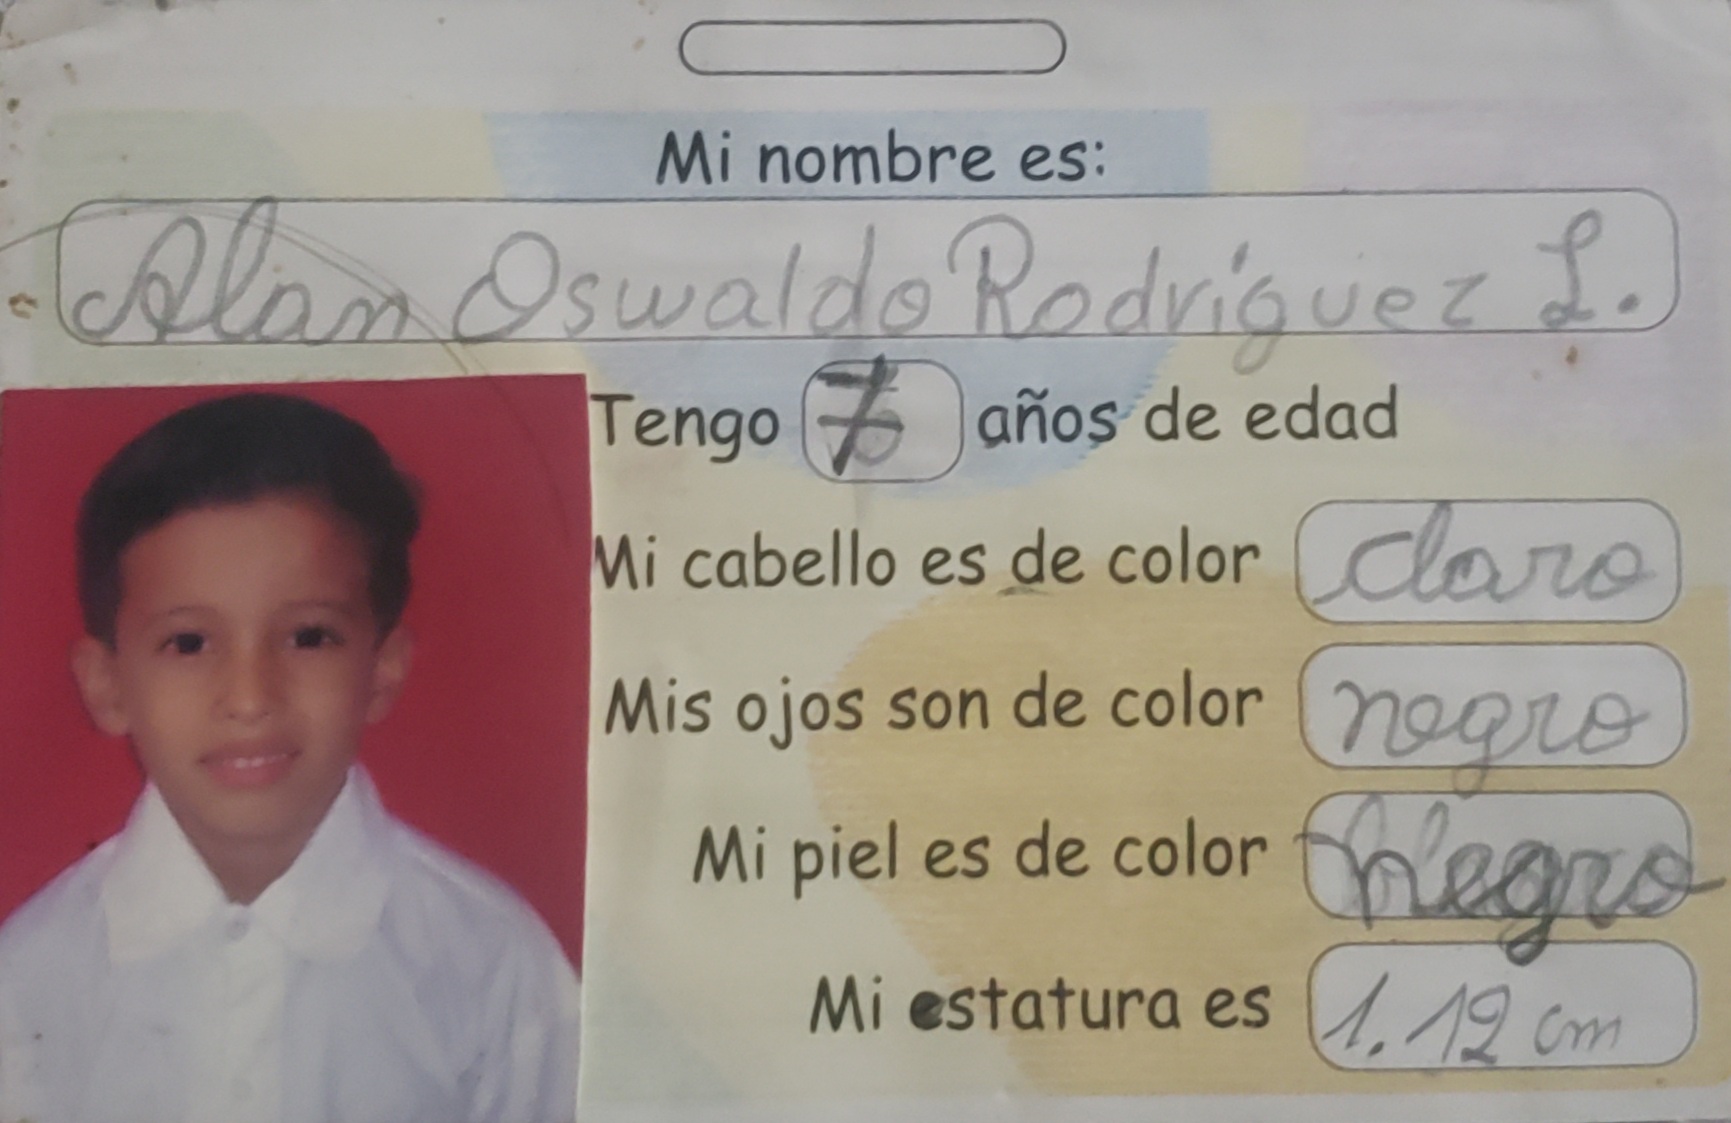 Mi nombre es:
Alan Oswaldo Rodríguez L.
Tengo 7 años de edad
Mi cabello es de color claro
Mis ojos son de color negro
Mi piel es de color Negro
Mi estatura es 1.12 cm